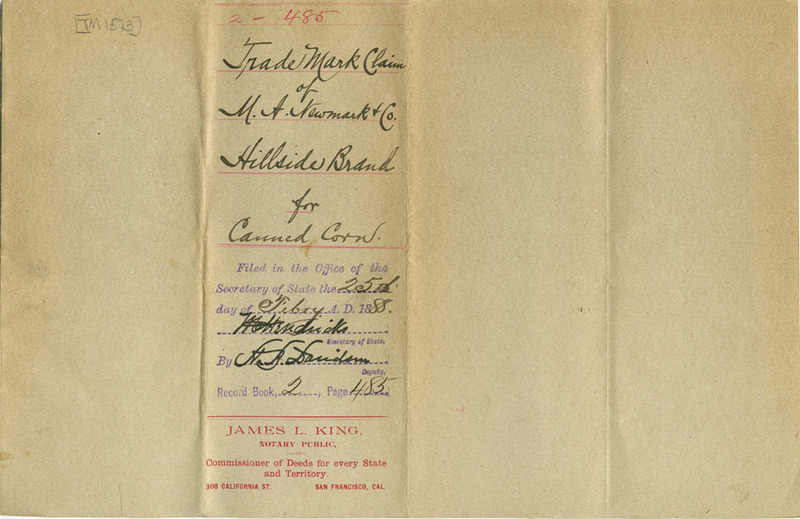 [TM 1513]
2 - 485
Trade Mark Claim
of
M. A. Newmark & Co.
Hillside Brand
for
Canned Corn.
Filed in the Office of the
Secretary of State the 25th
day of Feby A. D. 1888.
W C Hendricks
Secretary of State.
By
Davidson
Deputy.
Record Book, 2, Page 485
JAMES L. KING,
NOTARY PUBLIC,
—AND—
Commissioner of Deeds for every State
and Territory.
308 CALIFORNIA ST. SAN FRANCISCO, CAL.